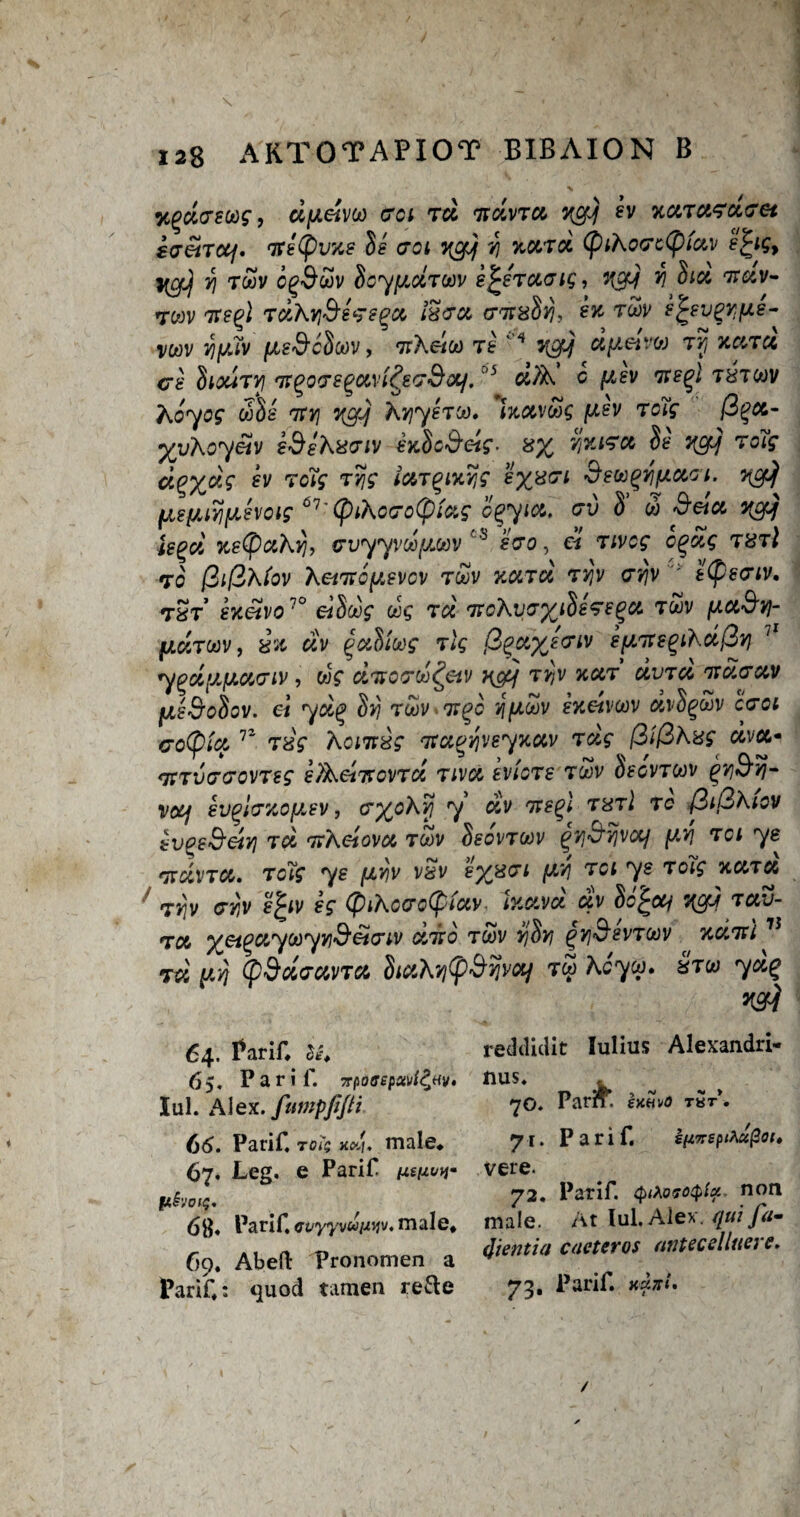 128 ΑΚΤΟΥΑΡΙΟΥ ΒΙΒΛΙΟΝ Β
κράσεως, ἀμείνω σοι τὰ πάντα καὶ ἐν καταστάσει
ἐσεῖται. πέφυκε δέ σοι καὶ ἡ κατὰ φιλοσοφίαν ἕξις,
καὶ ἡ τῶν ὀρθῶν δογμάτων ἐξέτασις, καὶ ἡ διὰ πάν-
των περὶ τἀληθέστερα ἰοῦσα σπουδὴ, ἐκ τῶν ἐξευρημέ-
νων ἡμῖν μεθόδων, πλείω τε 64 καὶ ἀμείνω τῇ κατὰ
σὲ διαίτῃ προσερανίζεσθαι. 65 ἀλλ' ὁ μὲν περὶ τούτων
λόγος ὧδέ πῃ καὶ ληγέτω. ἱκανῶς μὲν τοῖς βρα-
χυλογεῖν ἐθέλουσιν ἐκδοθείς. οὐχ ἥκιστα δὲ καὶ τοῖς
ἀρχὰς ἐν τοῖς τῆς ἰατρικῆς ἔχουσι θεωρήμασι. καὶ
μεμιημένοις 67 φιλοσοφίας ὄργια. σὺ δ' ὦ θεία καὶ
ἱερὰ κεφαλὴ, συγγνώμων 68 ἔσο, εἴ τινος ὁρᾷς τουτὶ
τὸ βιβλίον λειπόμενον τῶν κατὰ τὴν σὴν 69 ἔφεσιν.
τοῦτ' ἐκεῖνο 70 εἰδὼς ὡς τὰ πολυσχιδέστερα τῶν μαθη-
μάτων, οὐκ ἂν ῥᾳδίως τὶς βραχέσιν ἐμπεριλάβῃ 71
γράμμασιν, ὡς ἀποσώζειν καὶ τὴν κατ' αὐτὰ πᾶσαν
μέθοδον. εἰ γὰρ δὴ τῶν πρὸ ἡμῶν ἐκείνων ἀνδρῶν ὅσοι
σοφίᾳ 72 τοὺς λοιποὺς παρήνεγκαν τὰς βίβλους ἀνα-
πτύσσοντες ἐλλείποντά τινα ἐνίοτε τῶν δεόντων ῥηθῆ-
ναι εὑρίσκομεν, σχολῇ γ' ἂν περὶ τουτὶ τὸ βιβλίον
εὑρεθείη τὰ πλείονα τῶν δεόντων ῥηθῆναι μή τοι γε
πάντα. τοῖς γε μὴν νοῦν ἔχουσι μή τοι γε τοῖς κατὰ
τὴν σὴν ἕξιν ἐς φιλοσοφίαν. ἱκανὰ ἂν δόξαι καὶ ταῦ-
τα χειραγωγηθεῖσιν ἀπὸ τῶν ἤδη ῥηθέντων κἀπὶ 73
τὰ μὴ φθάσαντα διαληφθῆναι τῷ λόγῳ. οὕτω γὰρ
καὶ
64. Parif. δέ.
65. Parif. προσερανίζειν. Iul. Alex. sumpsisti
66. Parif. τοῖς καὶ. male.
67. Leg. e Parif. μεμυημένοις.
68. Parif. συγγνώμην. male.
69. Abest Pronomen a Parif.: quod tamen recte
reddidit Iulius Alexandrinus.
70. Parif. ἐκεῖνο τοῦτ'.
71. Parif. ἐμπεριλάβοι. vere.
72. Parif. φιλοσοφίᾳ. non male. At Iul. Alex. qui sapientia caeteros antecelluere.
73. Parif. κἀπί.